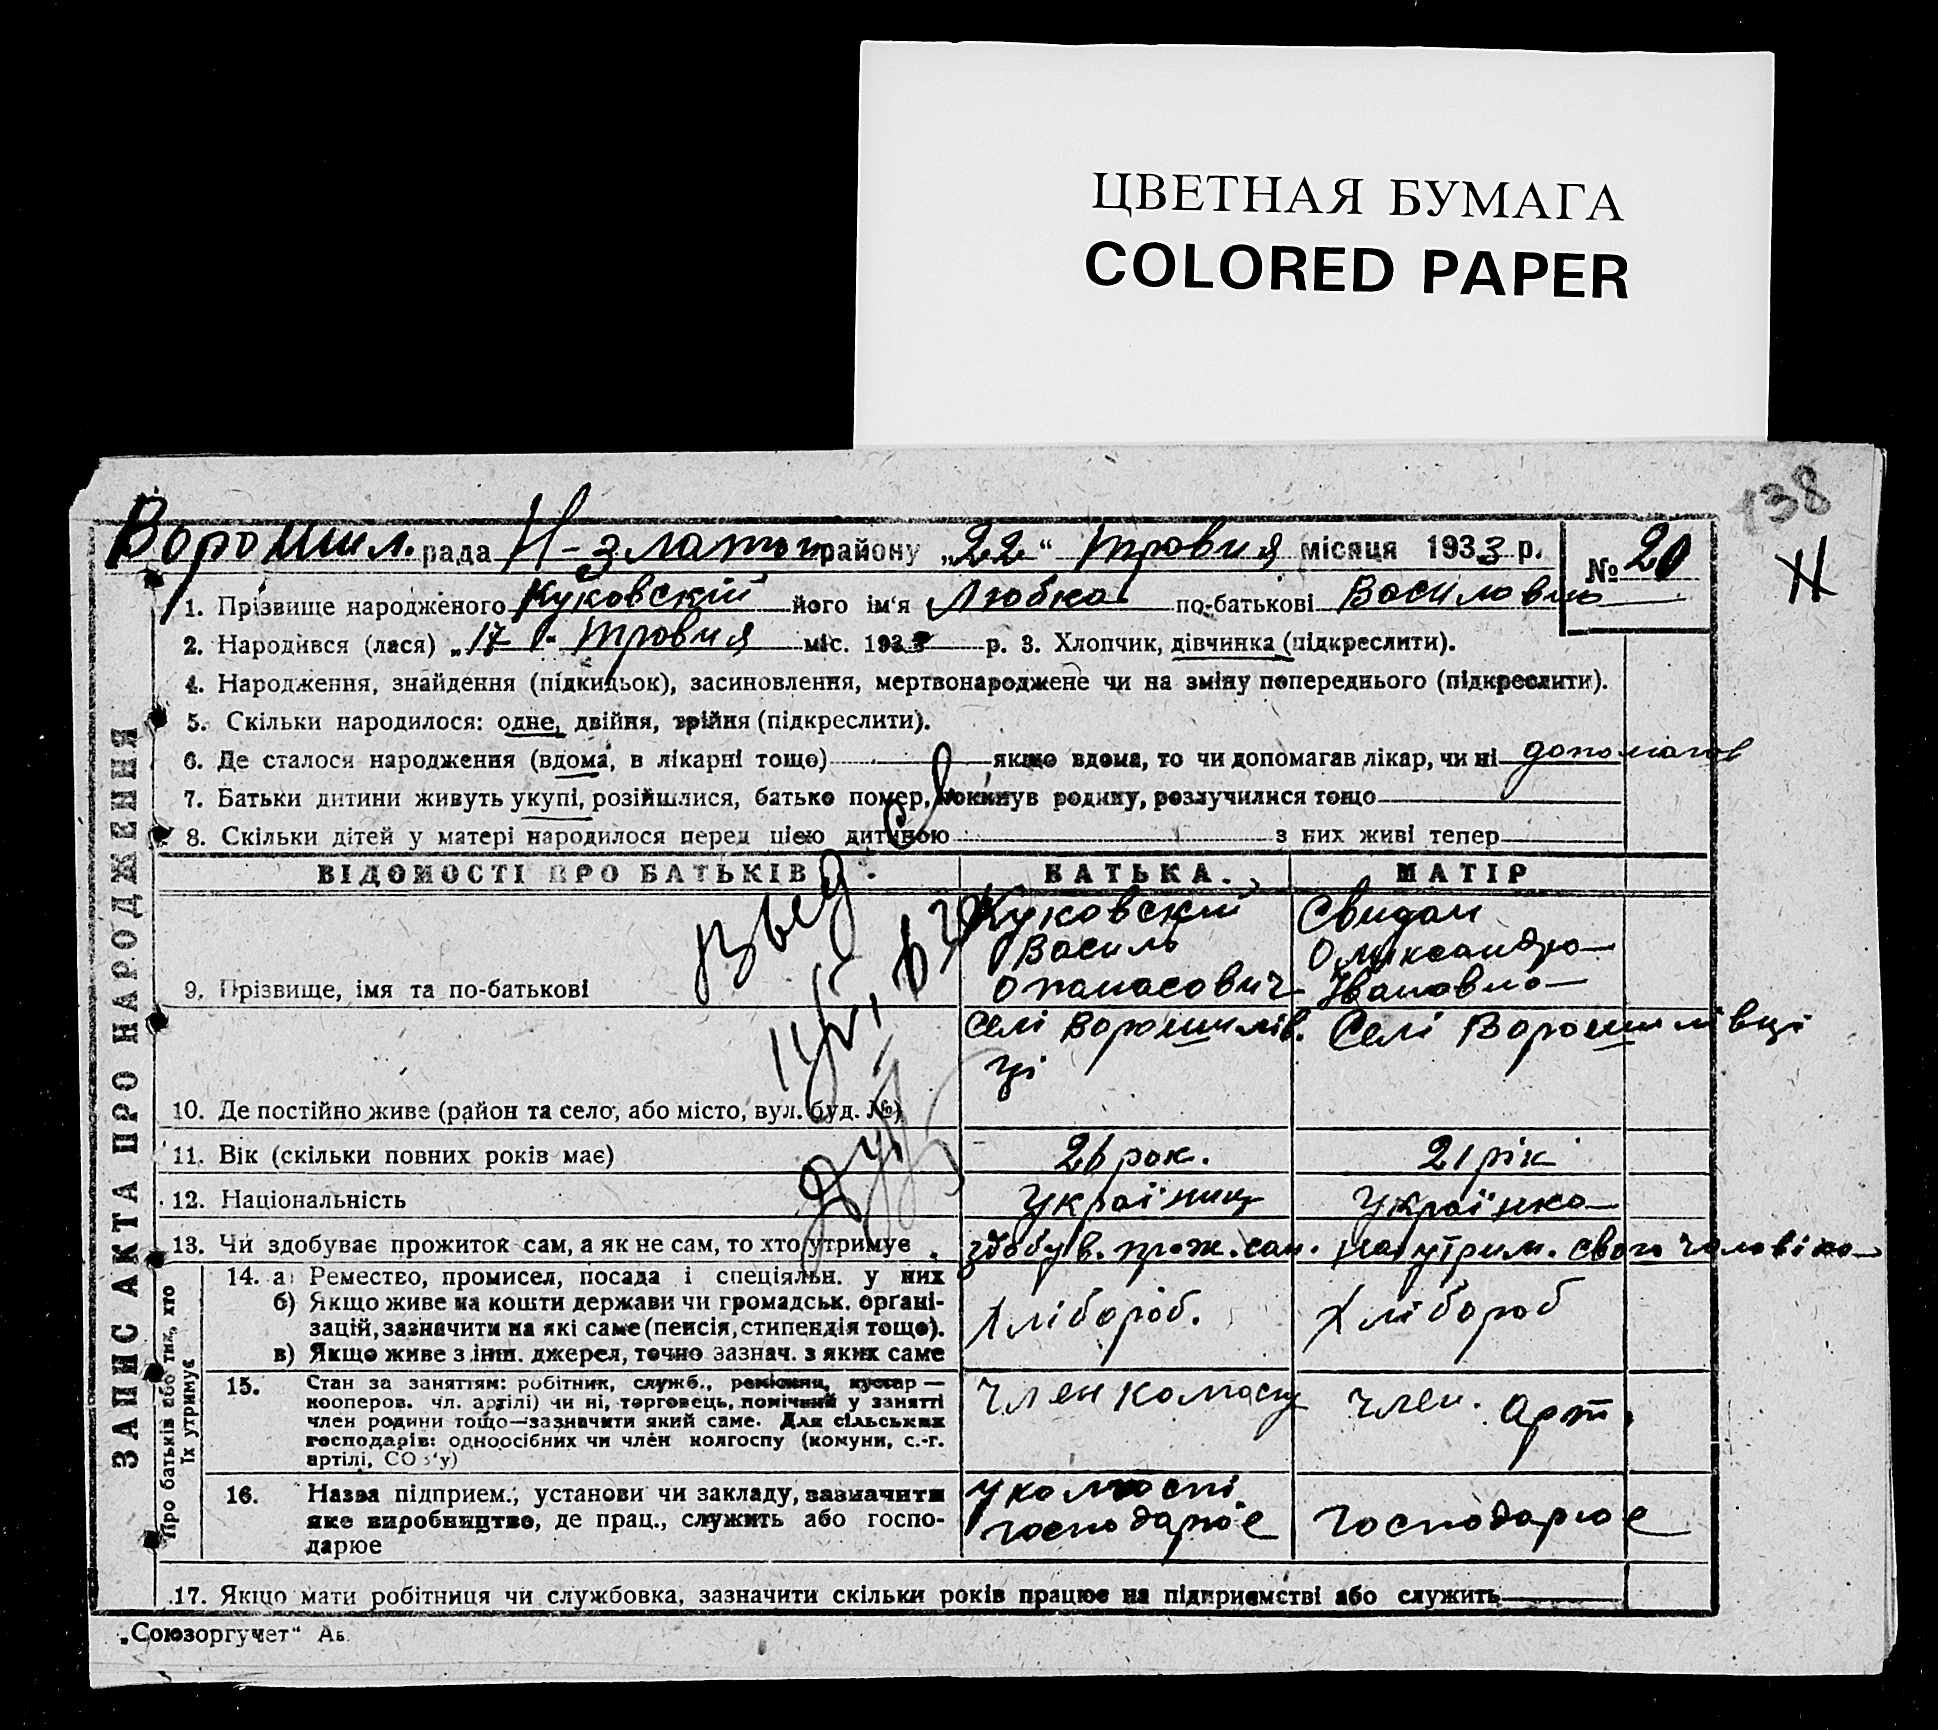 ЦВЕТНАЯ БУМАГА
COLORED PAPER
138
Ворошил. рада Н-златоп району „22“ травня місяця 1933 р. № 20
Н
1. Прізвище народженого Куковскій його ім'я Любка по-батькові Василовна
2. Народився (лася) „17“ травня міс. 1933 р. 3. Хлопчик, дівчинка (підкреслити).
4. Народження, знайдення (підкидьок), засиновлення, мертвонароджене чи на зміну попереднього (підкреслити).
5. Скільки народилося: одне, двійня, трійня (підкреслити).
6. Де сталося народження (вдома, в лікарні тощо) якщо вдома, то чи допомагав лікар, чи ні допомагав
7. Батьки дитини живуть укупі, розійшлися, батько помер, покинув родину, розлучилися тощо
8. Скільки дітей у матері народилося перед цією дитиною з них живі тепер
ЗАПИС АКТА ПРО НАРОДЖЕННЯ
ВІДОМОСТІ ПРО БАТЬКІВ БАТЬКА. МАТІР
9. Прізвище, імя та по-батькові
Куковский
Василь
опанасович
Свидан
Олександра
Івановна
10. Де постійно живе (район та село, або місто, вул. буд. №)
Селі Ворошилів.
ці
Селі Ворошилівці
11. Вік (скільки повних років має) 26 рок. 21 рік
12. Національність Українец Українка
13. Чи здобуває прожиток сам, а як не сам, то хто утримує здобув. прож. сам. на утрим. свого чоловіка
Про батьків або тих, хто їх утримує
14. а) Ремество, промисел, посада і спеціяльн. у них
б) Якщо живе на кошти держави чи громадськ. організацій, зазначити на які саме (пенсія, стипендія тощо).
в) Якщо живе з інш. джерел, точно зазнач. з яких саме
Хлібороб. Хлібороб
15. Стан за заняттям: робітник, служб., ремісник, кустар —
кооперов. чл. артілі) чи ні, торговець, помічний у занятті
член родини тощо—зазначити який саме. Для сільських
господарів: одноосібних чи член колгоспу (комуни, с.-г.
артілі, СОЗ'у)
член колгоспу член. арт.
16. Назва підприєм., установи чи закладу, зазначити
яке виробництво, де прац., служить або госпо-
дарює
у колгоспі
господарює господарює
17. Якщо мати робітниця чи службовка, зазначити скільки років працює на підприємстві або служить
„Союзоргучет“